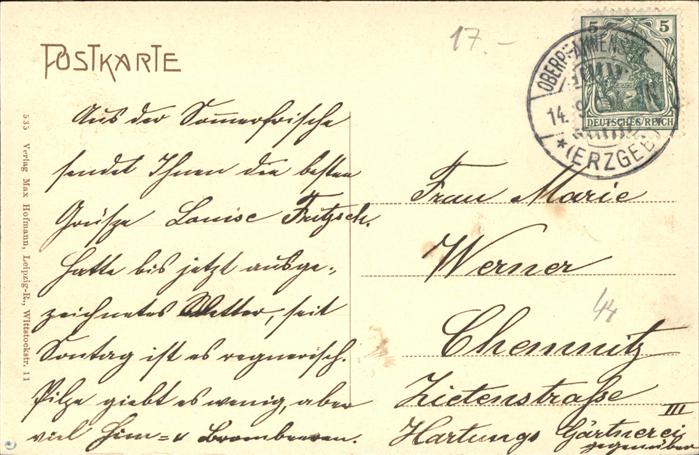 POSTKARTE
17.-
5 5
DEUTSCHES REICH
14.
*(ERZGEB
Aus der Sommerfrische
sendet Ihnen die besten
Grüsze Louise Fritzsch.
Hatte bis jetzt ausge-
zeichnetes Wetter, seit
Sontag ist es regnerisch.
Pilze giebt es wenig, aber
viel Him= u Brombeeren.
Frau Marie
Werner
44
Chemnitz
Zietenstraße
III
Hartungs Gärtnerei
gegenüber
535 Verlag Max Hofmann, Leipzig-R., Wittstockstr. 11